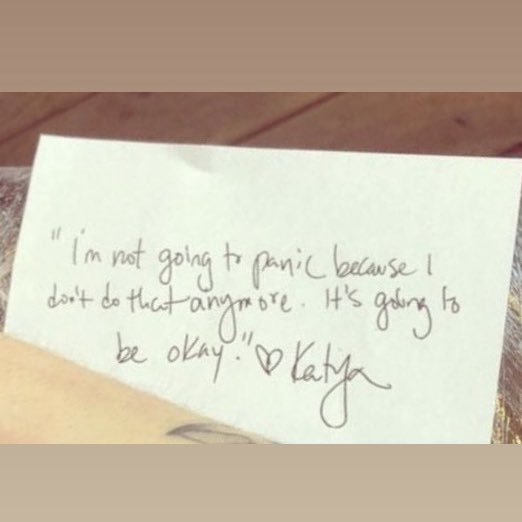 "I'm not going to panic because I
don't do that anymore. It's going to
be okay." ♡ Katya